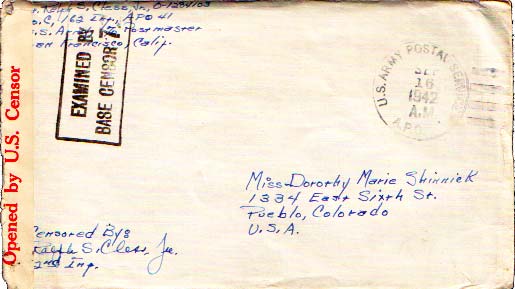 Ralph S. Cless, Jr., O-1284103
Co. C, 162 Inf., APO 41
U.S. Army, % Postmaster
San Francisco, Calif.
EXAMINED BY
BASE CENSOR 7
U.S. ARMY POSTAL SERVICE
SEP
16
1942
A.M.
A.P.O.
Miss Dorothy Marie Shinnick
1334 East Sixth St.
Pueblo, Colorado
U.S.A.
Opened by U.S. Censor
Censored By:
Ralph S. Cless, Jr.
2nd Inf.